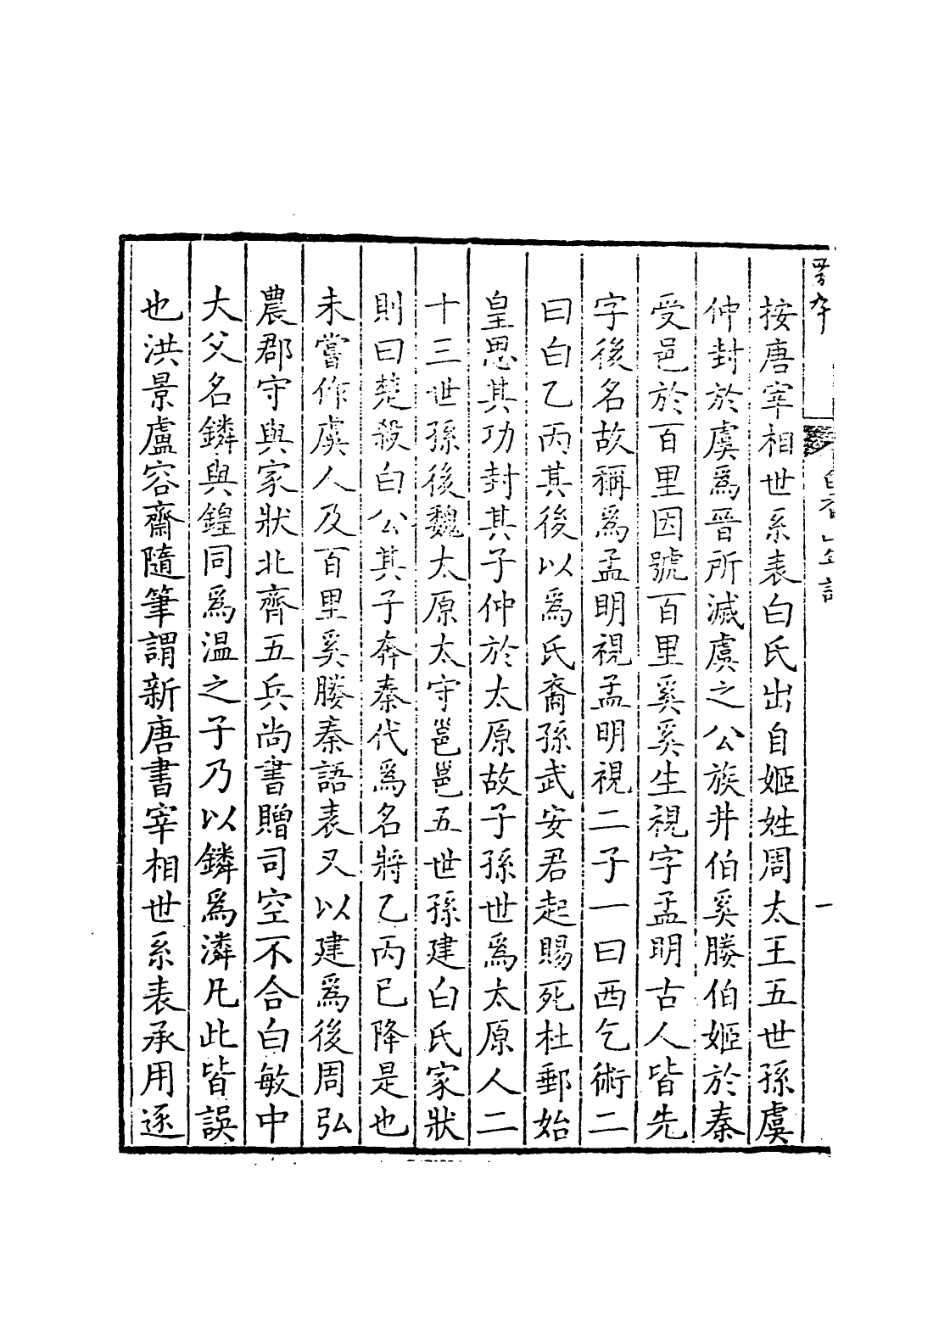 按唐宰相世系表白氏出自姬姓周太王五世孫虞
仲封於虞爲晉所滅虞之公族井伯奚媵伯姬於秦
受邑於百里因號百里奚奚生視字孟明古人皆先
字後名故稱爲孟明視孟明視二子一曰西乞術二
曰白乙丙其後以爲氏裔孫武安君起賜死杜郵始
皇思其功封其子仲於太原故子孫世爲太原人二
十三世孫後魏太原太守邕邕五世孫建白氏家狀
則曰楚殺白公其子奔秦代爲名將乙丙已降是也
未嘗作虞人及百里奚媵秦語表又以建爲後周弘
農郡守與家狀北齊五兵尚書贈司空不合白敏中
大父名鏻與鍠同爲温之子乃以鏻爲潾凡此皆誤
也洪景盧容齋隨筆謂新唐書宰相世系表承用逐